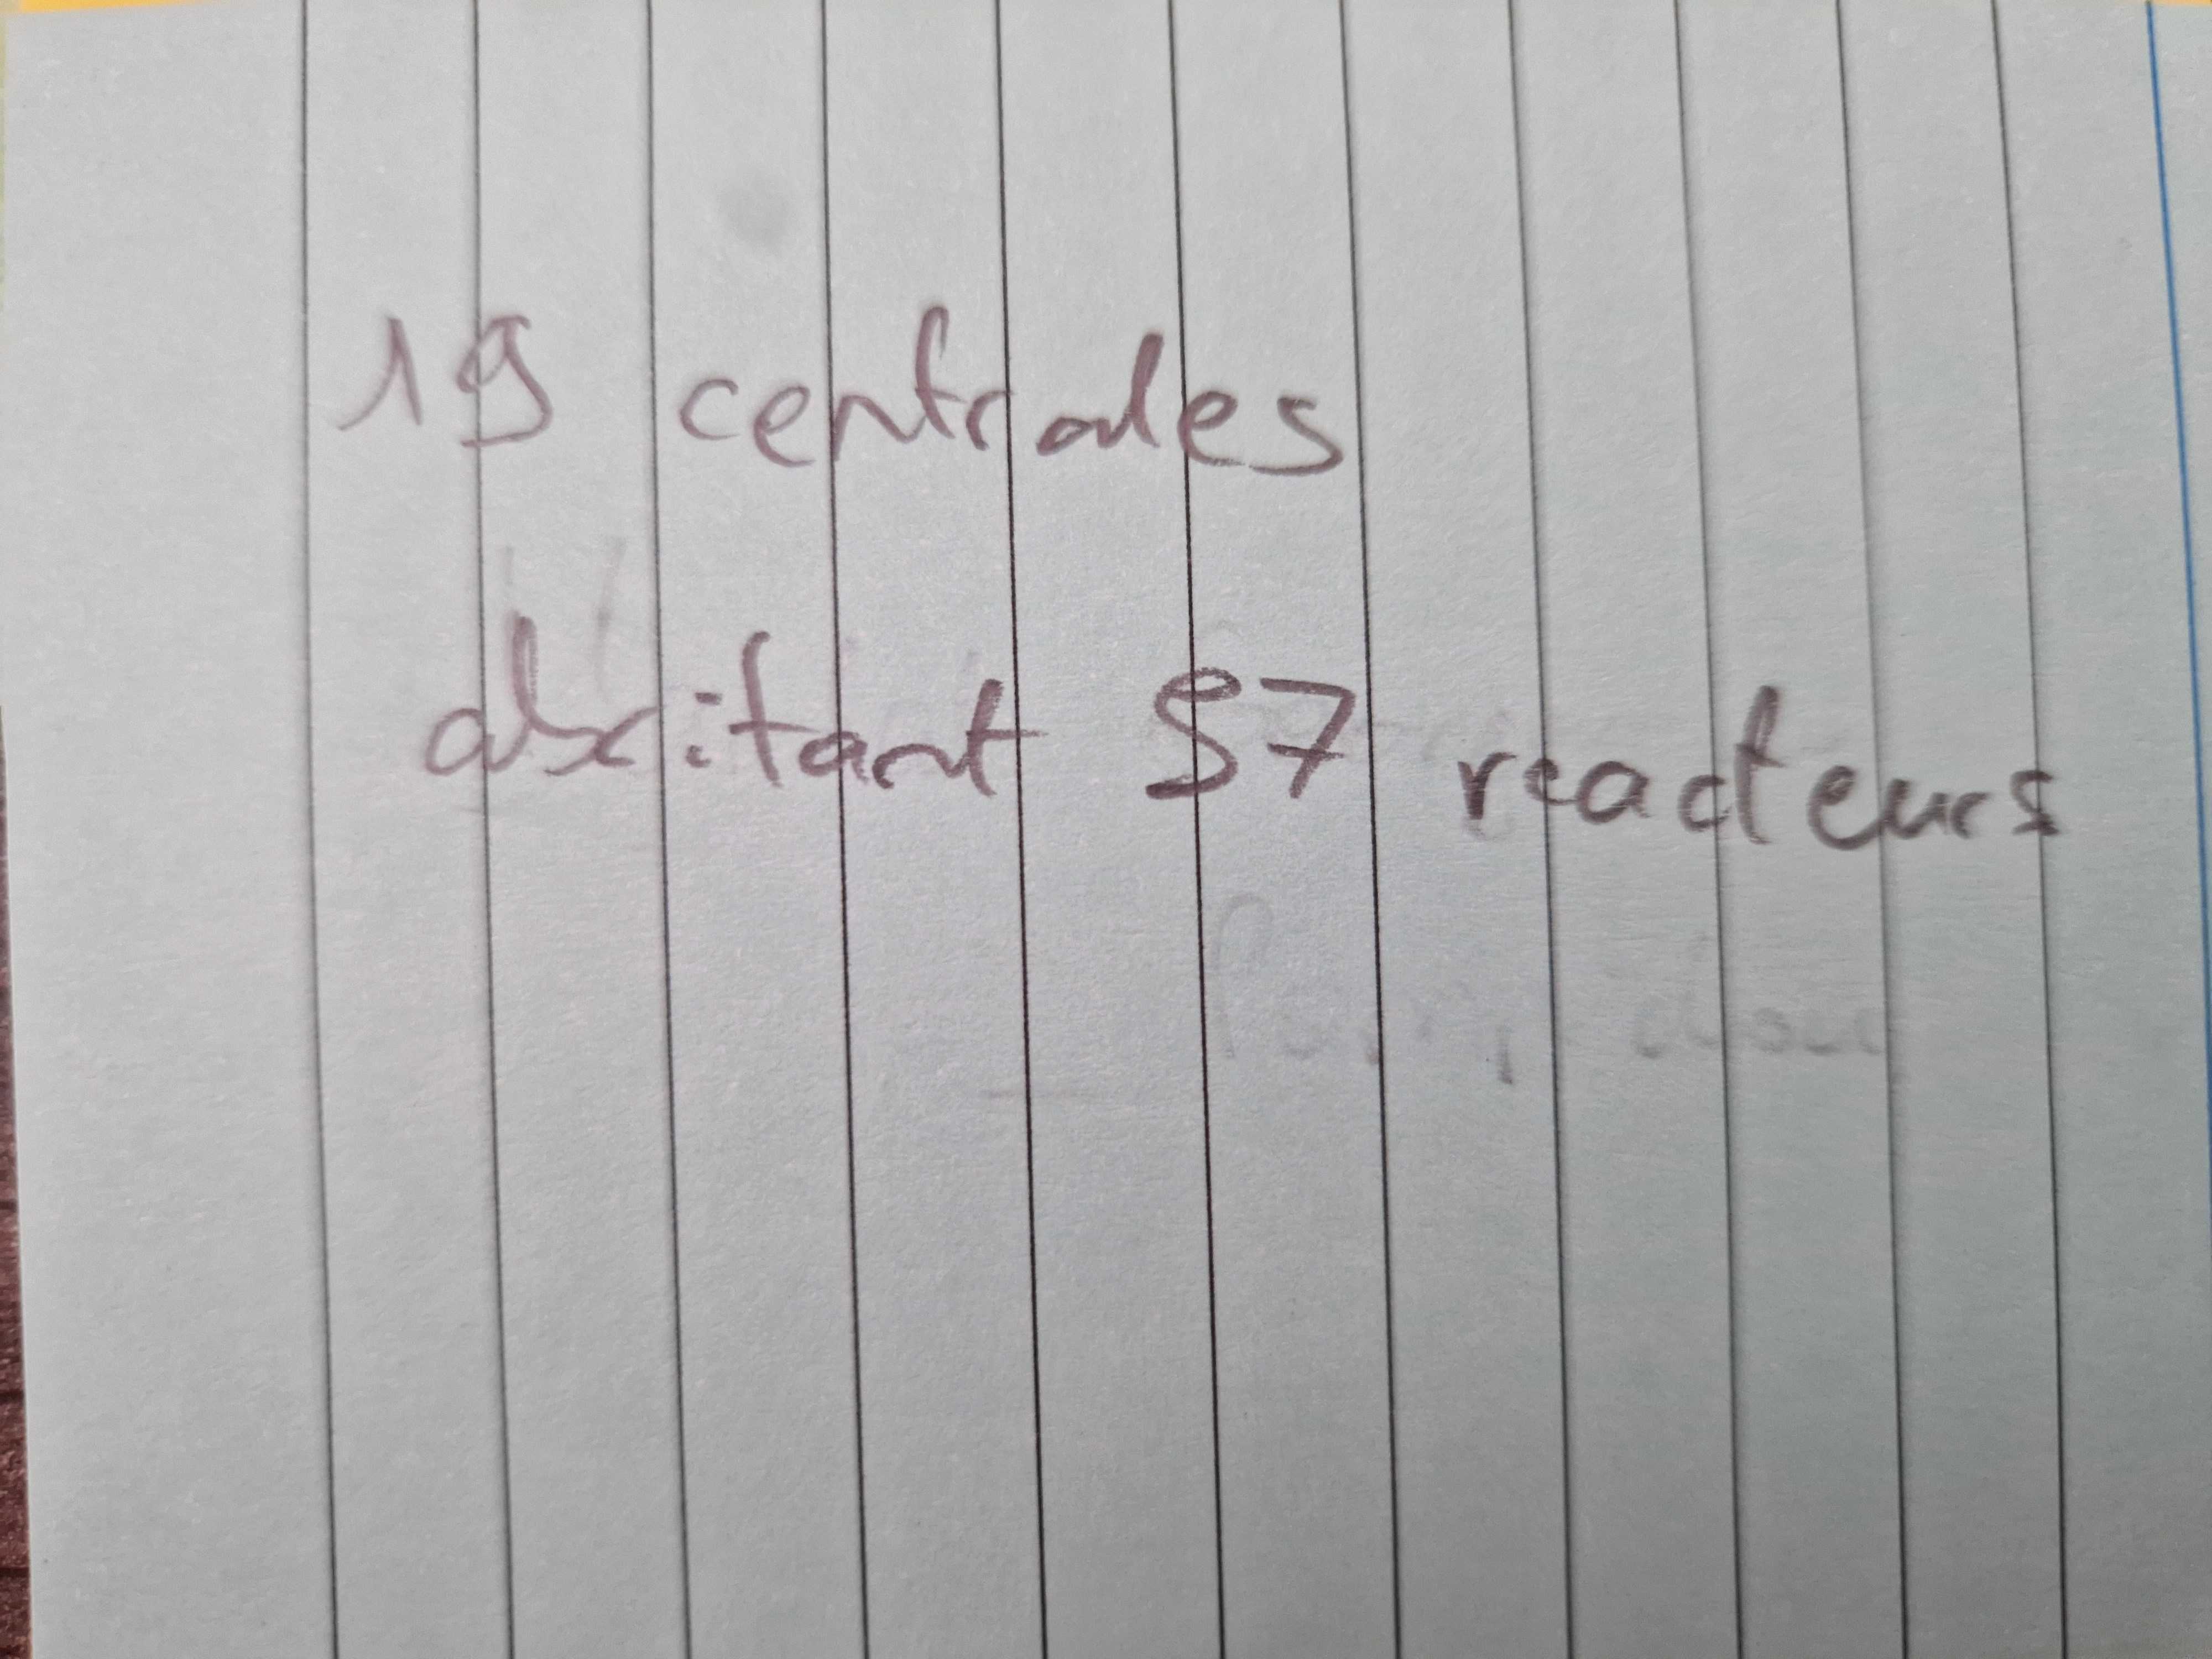 19 centrales
abritant 57 reacteurs